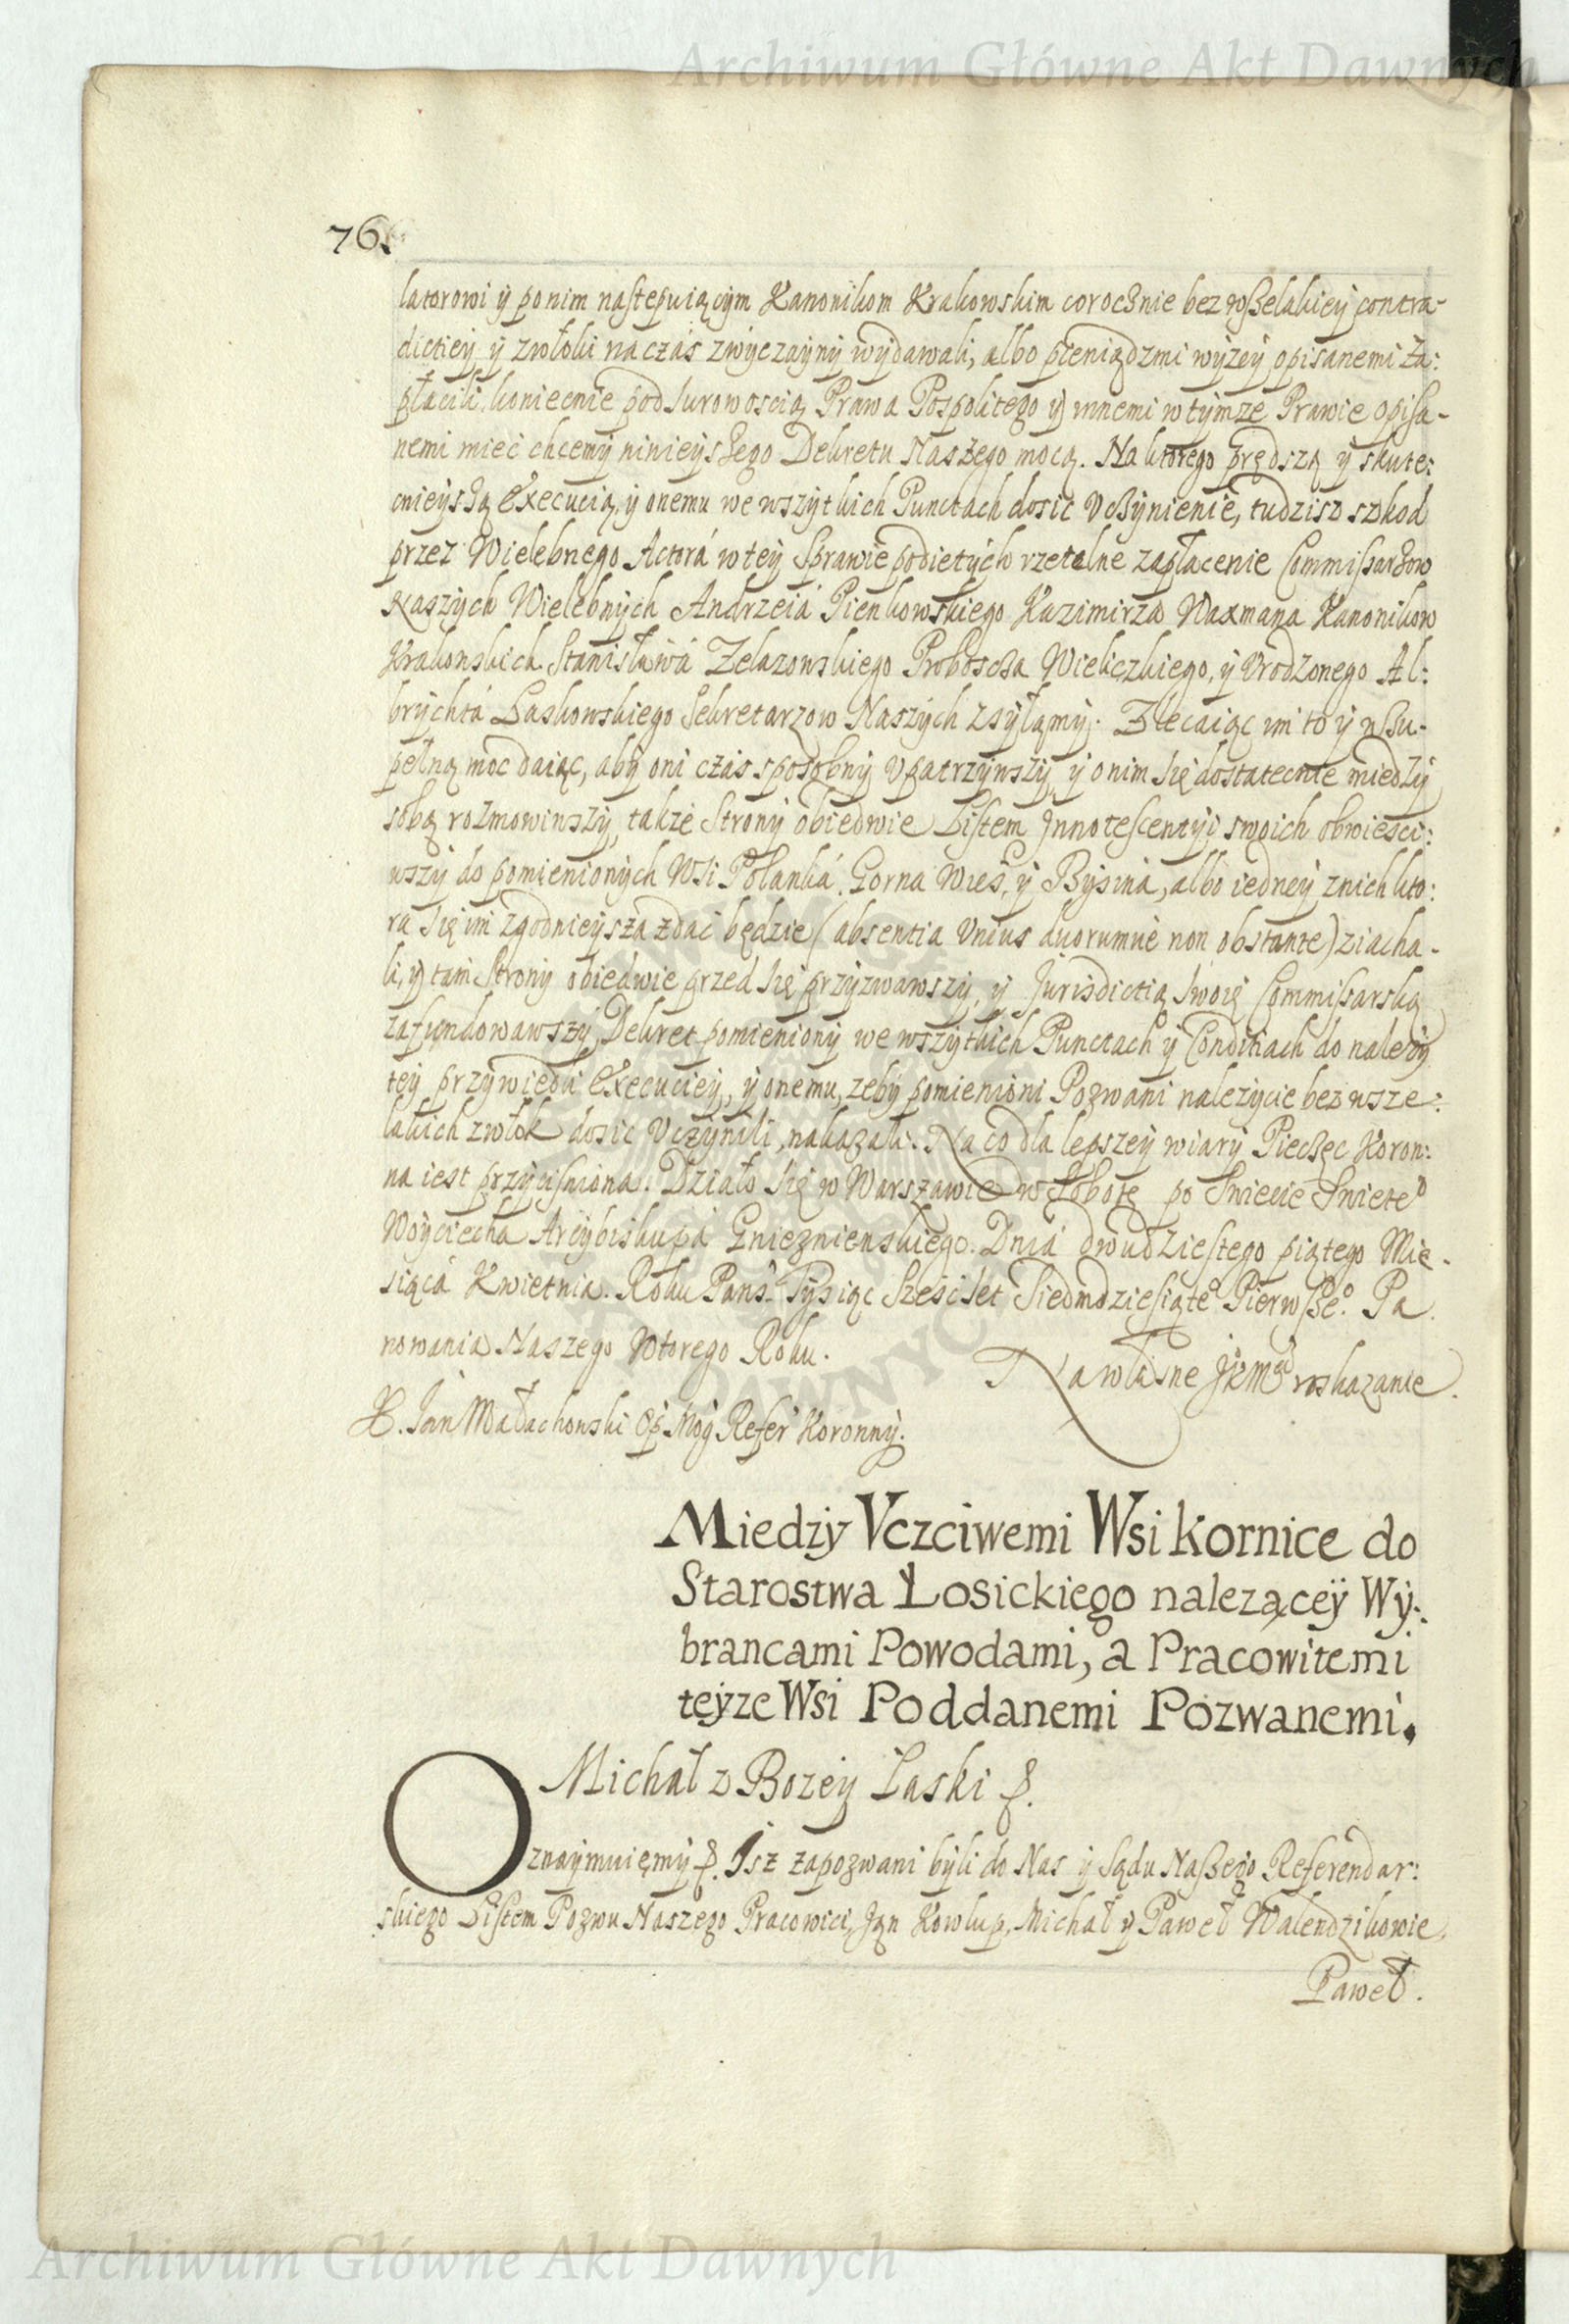 Archiwum Główne Akt Dawnych
76.
latorowi ÿ po nim nastepuiącÿm Kanonikom Krakowskim corocznie bez wszelakieÿ contra-
dictieÿ ÿ zwłoki na czás zwÿczaÿnÿ wÿdawali, albo pieniądzmi wÿzeÿ opisanemi za:
płacili, koniecnie pod surowoscią Prawa Pospolitego ÿ innemi w tÿmze Prawie opisa-
nemi miec chcemÿ ninieÿszego Dekretu Naszego mocą. Na ktorego prędszą ÿ skute:
cnieÿszą Execucią, ÿ onemu we wszÿtkich Punctach dosic Vczÿnienie, tudzisz szkod
przez Wielebnego Actorá w teÿ Sprawie podietÿch rzetelne zapłacenie Commissarzow
Naszÿch Wielebnÿch Andrzeiá Pienkowskiego Kazimirza Waxmana Kanonikow
Krakowskich Stanisławá Zelazowskiego Proboscza Wieliczkiego, ÿ Vrodzonego Al:
brÿchtá Laskowskiego Sekretarzow Naszÿch zsÿłamÿ. Zlecaiąc im to ÿ zu-
pełną moc daiąc, abÿ oni czás sposobnÿ Vpatrzÿwszÿ, ÿ o nim się dostatecnie miedzÿ
sobą rozmowiwszÿ, takze Stronÿ obiedwie Listem Innotescentÿi swoich obwiesci:
wszÿ do pomienionÿch Wsi Polanká, Gorna Wies, ÿ Bÿsina, albo iedneÿ z nich kto:
ra się im zgodnieÿsza zdac będzie (absentia Vnius duorumue non obstante) ziacha-
li, ÿ tam Stronÿ obiedwie przed się przÿzwawszÿ, ÿ Jurisdictią swoię Commissarską
zafundowawszÿ, Dekret pomienionÿ we wszÿtkich Punctach ÿ Conditiach do nalezÿ
teÿ przÿwiedli Execucieÿ, ÿ onemu, zebÿ pomienioni Pozwani nalezÿcie bez wsze:
lakich zwłok dosic Vczÿnili, nakazali. Na co dla lepszeÿ wiarÿ Pieczęc Koron:
na iest przÿcisniona. Działo się w Warszawie w Sobotę po Swiecie Swiete°
Woÿciecha Arcÿbiskupá Gnieznienskiego. Dniá dwudziestego piątego Mie-
siącá Kwietnia. Roku Pans: Tÿsiąc Szescset Siedmdziesiąte° Pierwsze°. Pa
nowania Naszego Wtorego Roku.
Na własne JKMci roskazanie.
X. Jan Małachowski Op: Mog Refer Koronnÿ.
Miedzÿ Vczciwemi Wsi Kornice do
Starostwa Łosickiego nalezącеÿ Wÿ:
brancami Powodami, a Pracowitemi
teÿze Wsi Poddanemi Pozwanemi.
Michał z Bozeÿ Laski &.
Oznaÿmuięmÿ &. Isz zapozwani bÿli do Nas ÿ Sądu Naszego Referendar:
skiego Listem Pozwu Naszego Pracowici, Jan Kowlup, Michał ÿ Paweł Walendzikowie.
Paweł.
Archiwum Główne Akt Dawnych